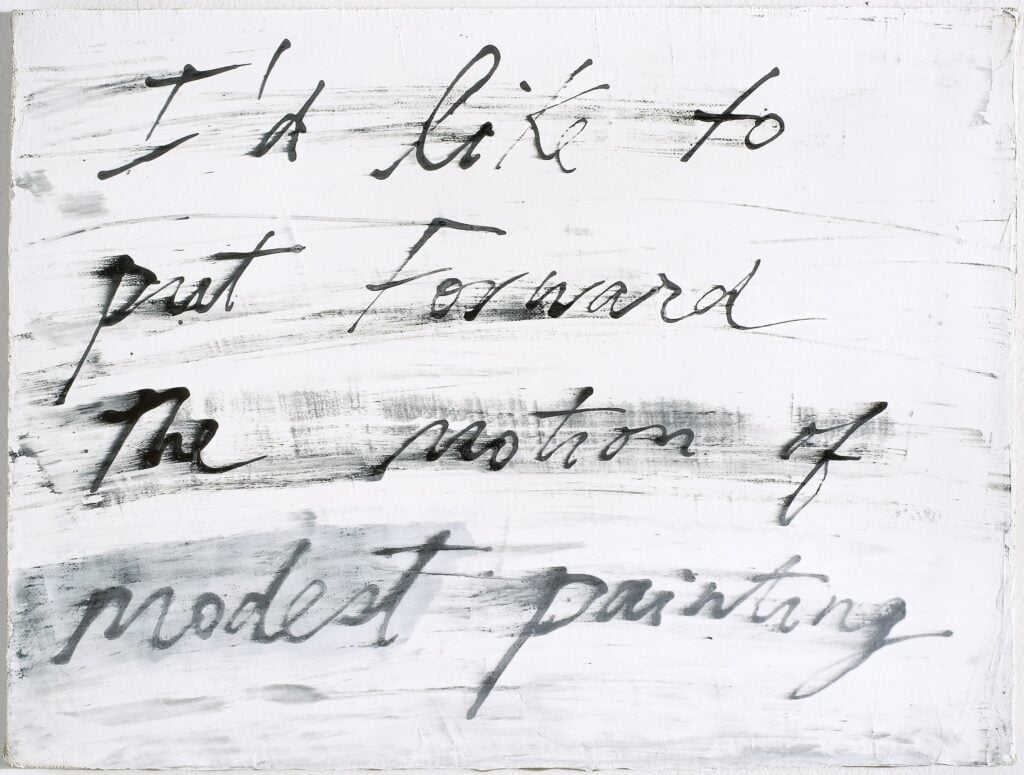 I'd like to
put Forward
The notion of
modest painting